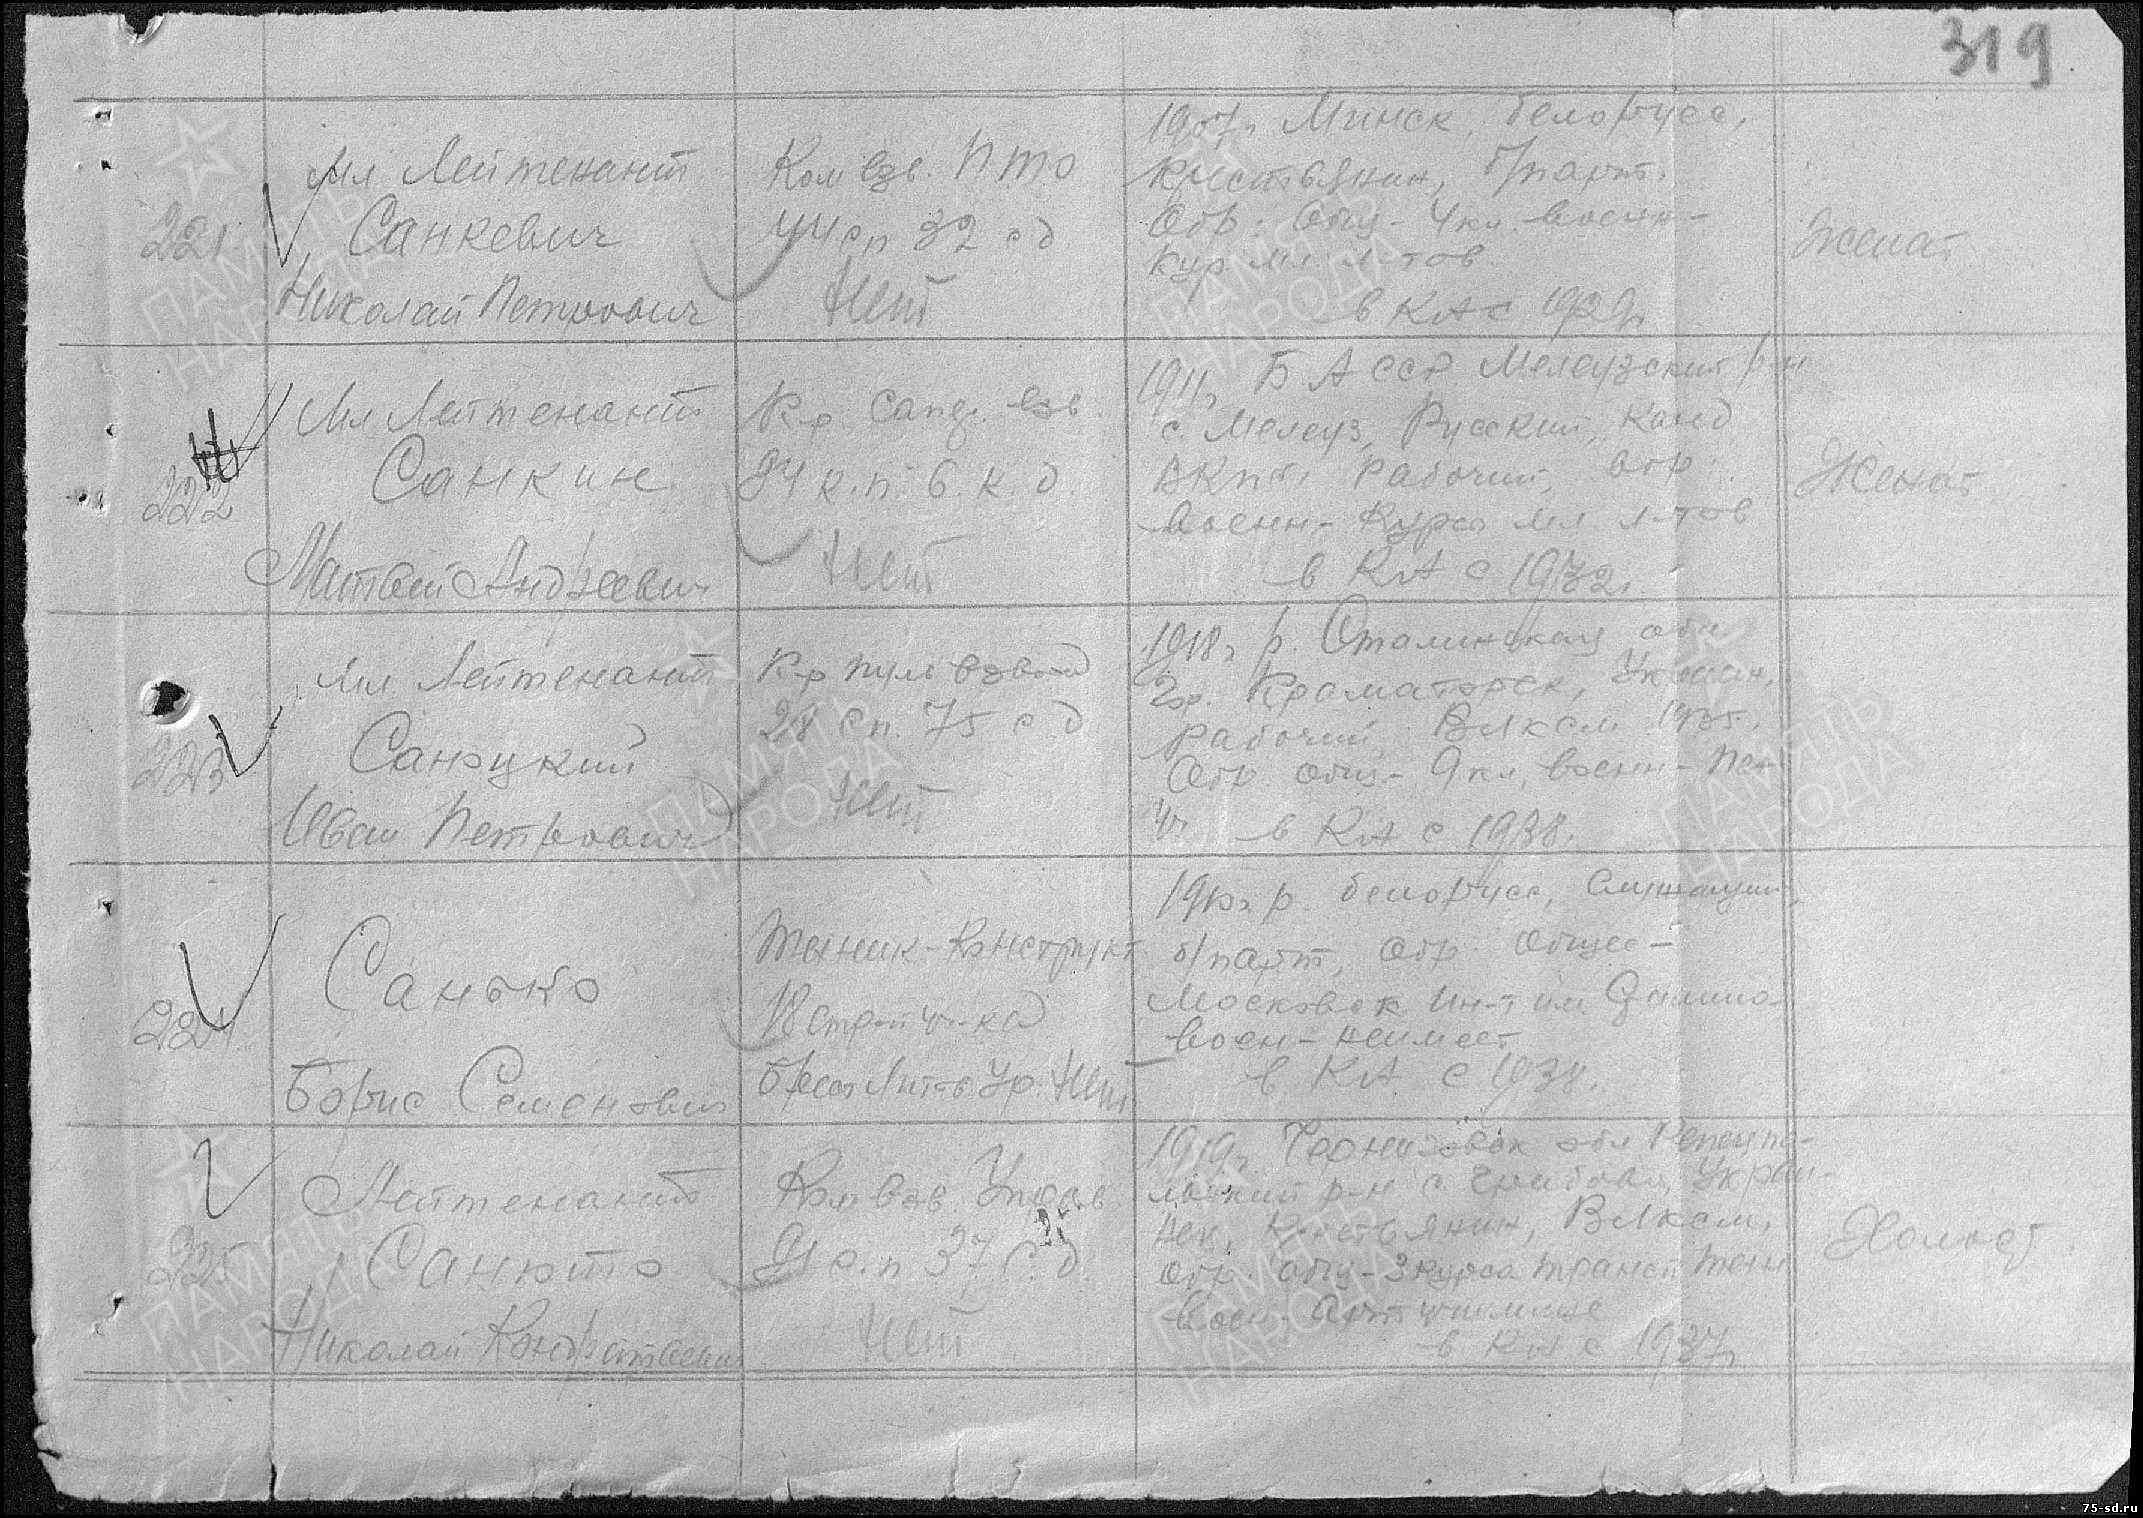 319
221
Мл Лейтенант
Санкевич
Николай Петрович
Ком взв. ПТО
44 сп 32 сд
Нет
1907г. Минск, белорусс,
крестьянин, б/парт.
Обр. общ - 4 кл. военн -
кур. мл. л-тов
в КА с 1929г.
Женат
222
Мл Лейтенант
Санкин
Матвей Андреевич
К-р Сапер. взв.
94 к.п. 6 к.д.
Нет
1911г. БАССР Мелеузский р-н
с. Мелеуз, Русский, Канд
ВКПб, Рабочий, обр.
военн - Курсы мл л-тов
в КА с 1932г.
Женат
223
Мл. Лейтенант
Саноцкий
Иван Петрович
К-р пуль взвод
28 сп. 75 с д
Нет
1918г р. Сталинская обл
гор. Краматорск, Украин,
рабочий, ВЛКСМ 1935г.
Обр общ - 9 кл, военн - Пех
Уч в КА с 1938.
224
Санько
Борис Семенович
Техник-Конструкт
18 стр-й уч-к
Брест Лит-в Ур. Нет
р. белорусс, Служащий,
б/парт, обр. общее -
Московск. Ин-т им.
воен - не имеет
в КА с 1938.
225
Лейтенант
Санюто
Николай Кондратьевич
Ком взв Управ.
сп 37 с.д.
Нет
1919г. Черниговск обл Репкин-
ский р-н с. Украи-
нец, Крестьянин, ВЛКСМ,
обр. общ - 3 курса трансп техн
Воен - Арт училище
в КА с 1937г.
Холост
ПАМЯТЬ НАРОДА
ПАМЯТЬ НАРОДА
ПАМЯТЬ НАРОДА
ПАМЯТЬ НАРОДА
ПАМЯТЬ НАРОДА
ПАМЯТЬ НАРОДА
75-sd.ru